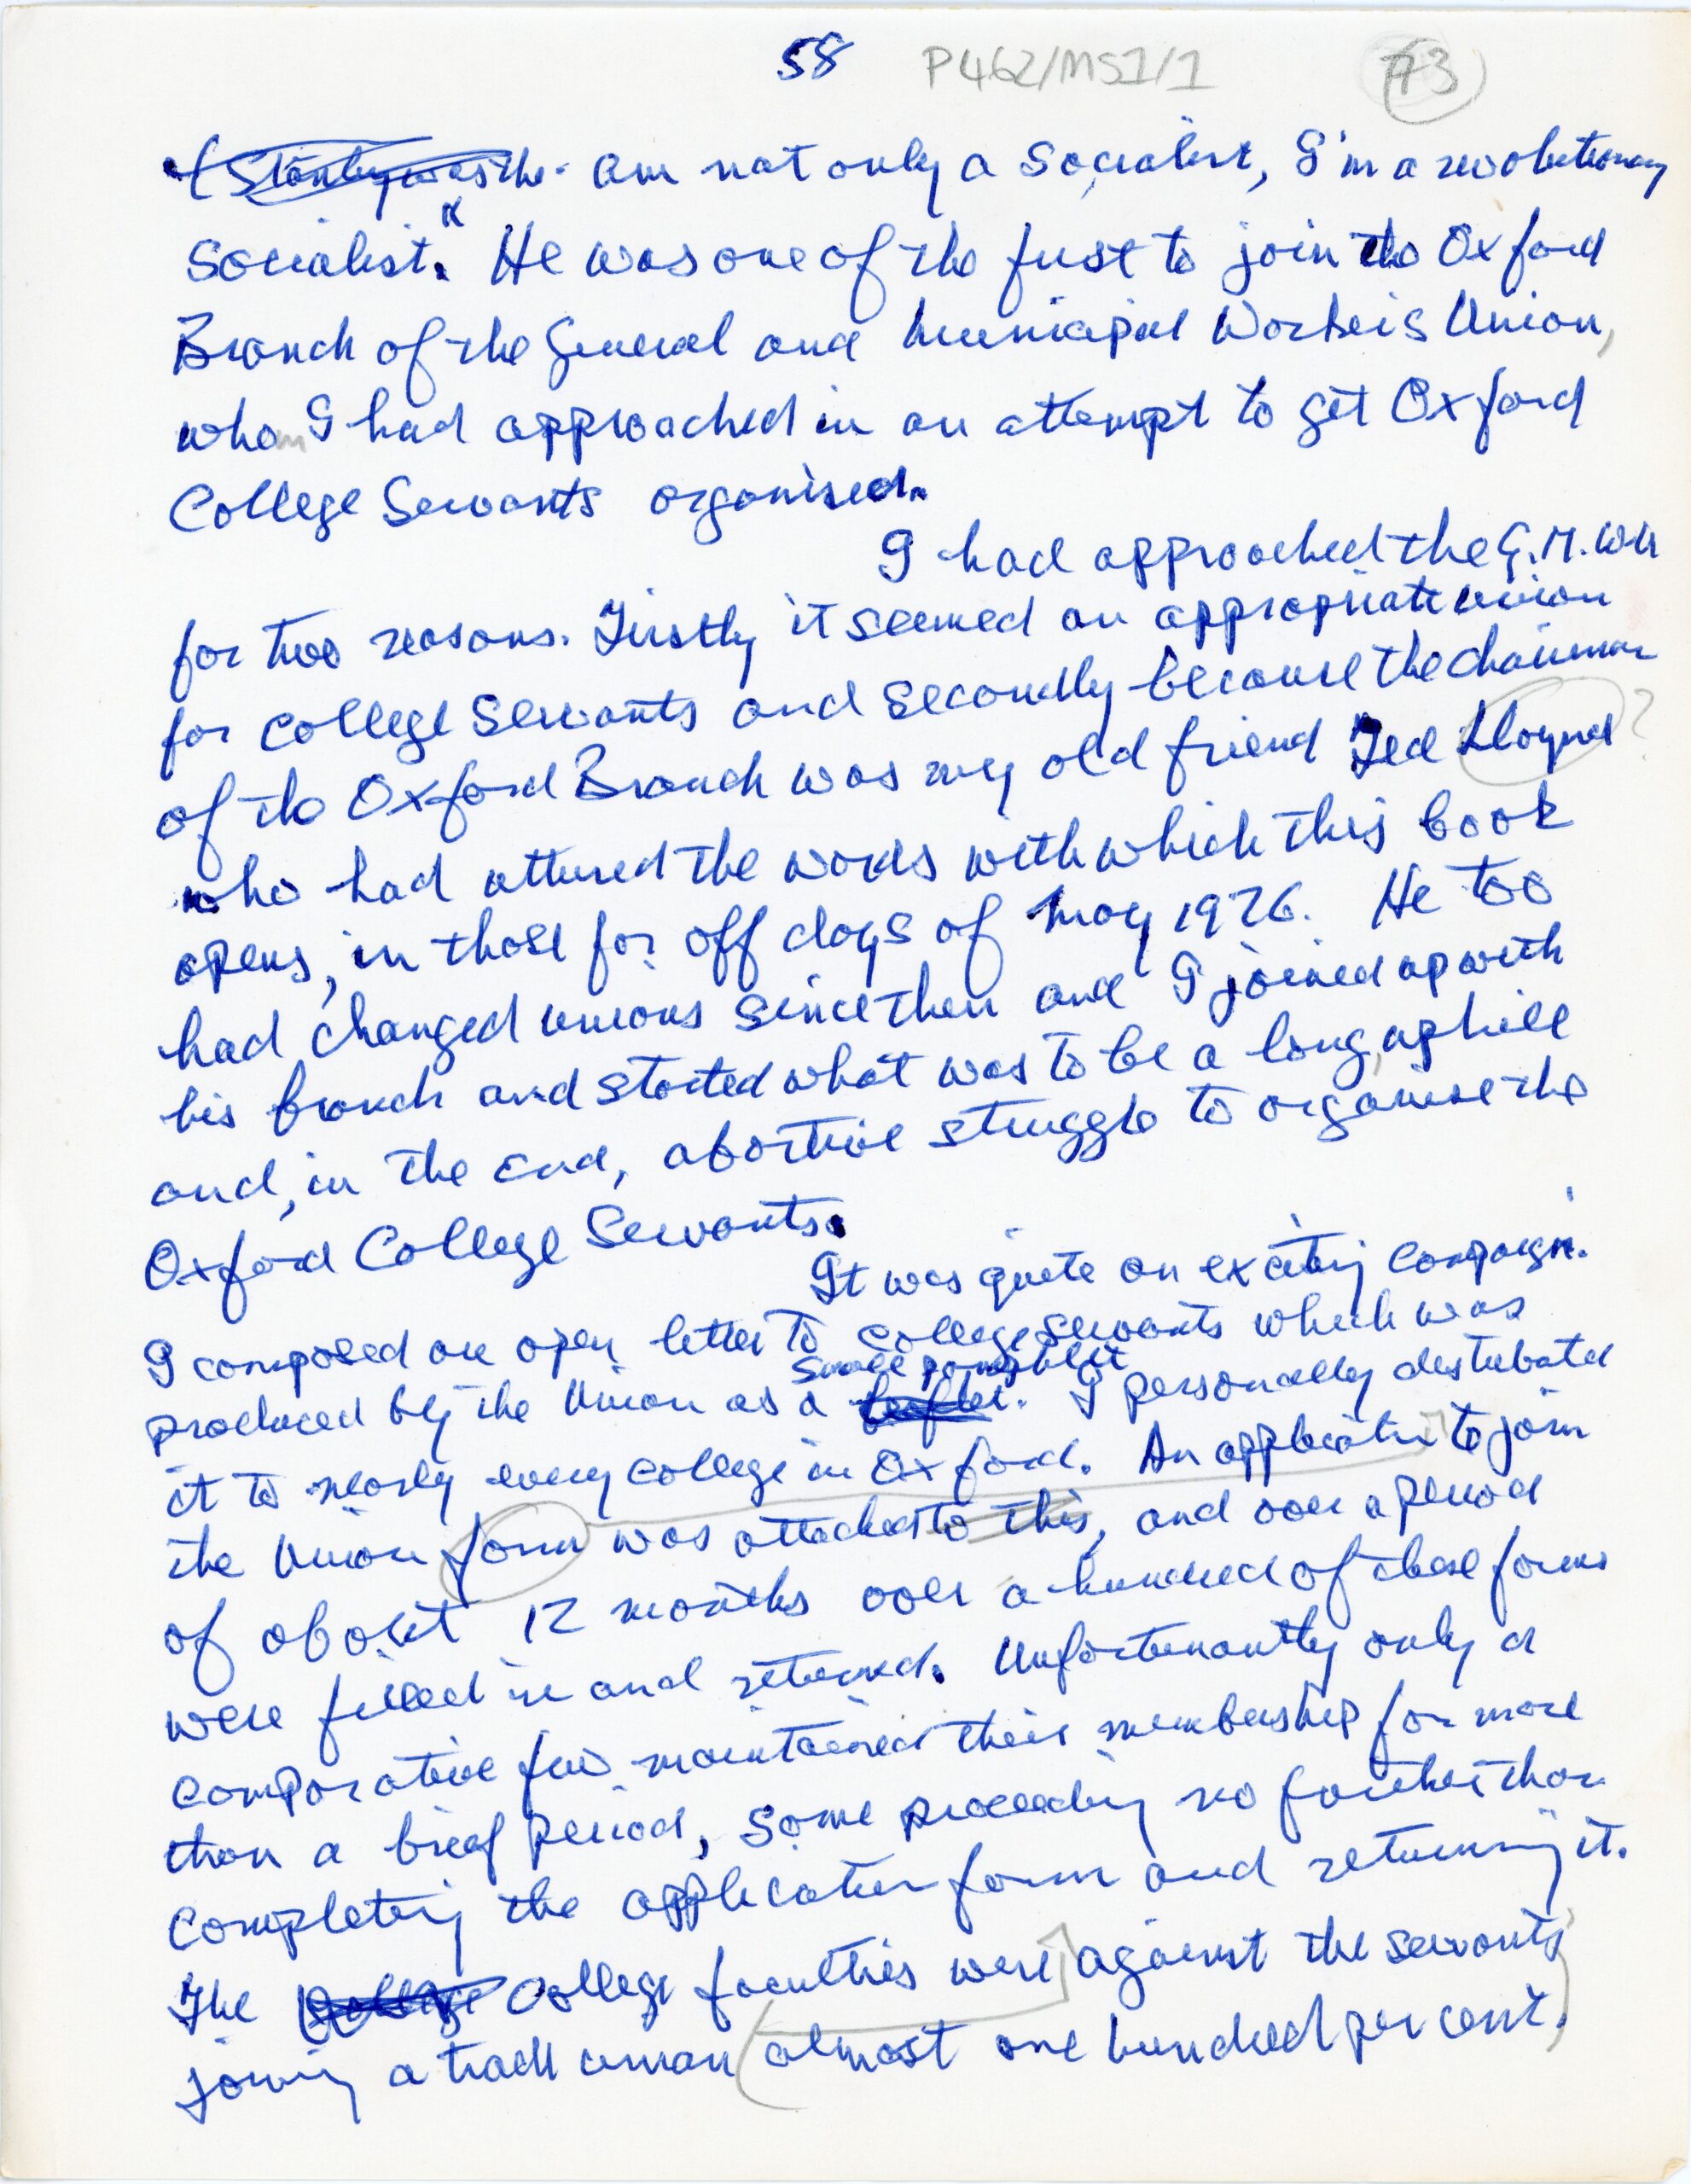 58 P462/MS1/1 73
am not only a Socialist, I'm a revolutionary
Socialist." He was one of the first to join the Oxford
Branch of the General and Municipal Workers Union,
whom I had approached in an attempt to get Oxford
College Servants organised.
I had approached the G.M.W.U
for two reasons. Firstly it seemed an appropriate union
for College Servants and secondly because the chairman
of the Oxford Branch was my old friend Ted Lloynd ?
who had uttured the words with which this book
opens, in those far off days of May 1926. He too
had changed unions since then and I joined up with
his branch and started what was to be a long, uphill
and, in the end, abortive struggle to organise the
Oxford College Servants.
It was quite an exciting campaign.
I composed an open letter to College Servants which was
small pamphlet
produced by the Union as a leaflet. I personally distributed
it to nearly every college in Oxford. An application to join
the Union form was attached to this, and over a period
of about 12 months over a hundred of these forms
were filled in and returned. Unfortunantly only a
comparative few maintained their membership for more
than a brief period, some proceeding no further than
completing the application form and returning it.
The College College faculties were against the servants
joining a trade union almost one hundred per cent.